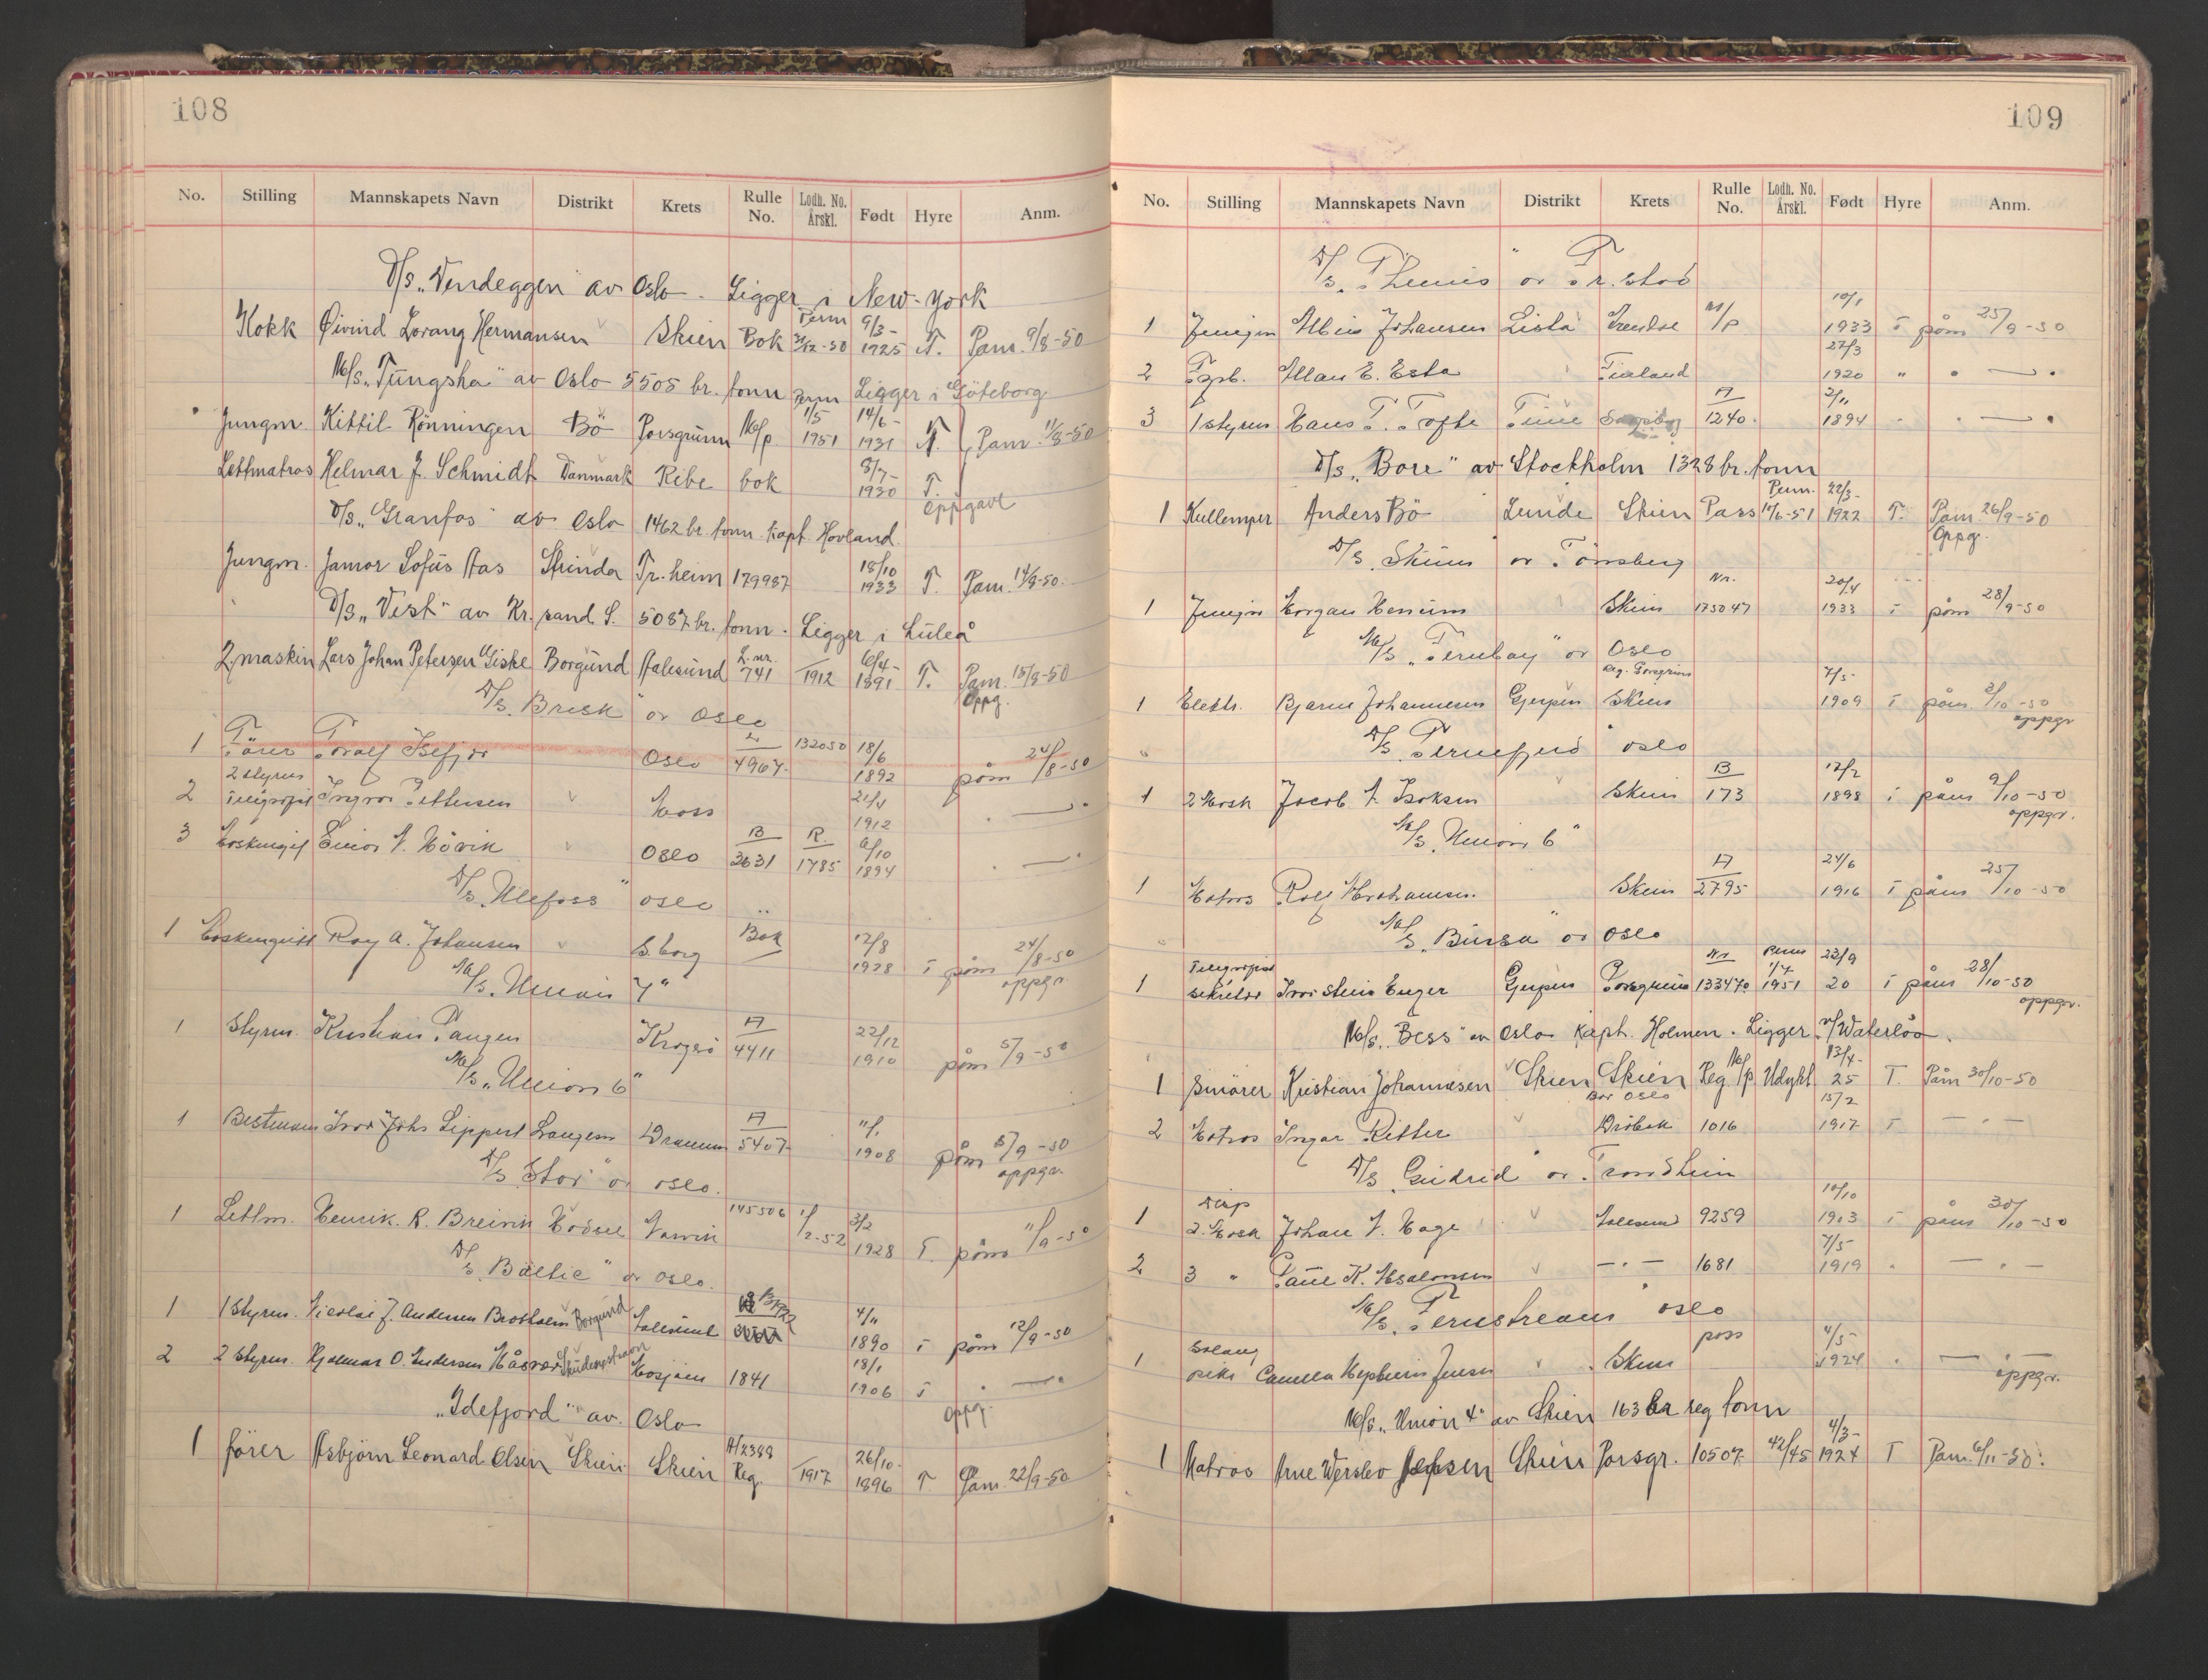 108
No. Stilling Mannskapets Navn Distrikt Krets Rulle No. Lodh. No. Årskl. Født Hyre Anm.
D/S „Vindeggen" av Oslo. Ligger i New-York
Kokk Öivind Lorang Hermansen Skien Bok Perm 31/12-50 9/3-1925 T. Påm. 9/8-50
M/S „Tungsha" av Oslo 5505 br. tonn Ligger i Göteborg
Jungm. Kittil Rönningen Bö Porsgrunn M/p. Perm 1/5 1951 14/6-1931 T. Påm. 11/8-50
Lettmatros Helmar J. Schmidt Danmark Ribe bok 8/7-1930 T. oppgavl
D/S „Granfos" av Oslo 1462 br. tonn. Kapt. Hovland.
Jungm. Jamar Sofus Aas Strinda Tr.heim 179987 18/10 1933 T. Påm. 14/8-50.
D/S „Vest" av Kr.sand S. 5087 br. tonn. Ligger i Luleå
2 maskin Lars Johan Petersen Giske Borgund Aalesund L.nr. 741 1912 6/4-1891 T. Påm. 15/8-50 Oppg.
D/S „Brisk" av Oslo
1 Förer Toralf Isefjær Oslo 4967 132050 18/6 1892 påm 24/8-50
2 2 styrm Telegrafist Ingvar Pettersen Moss 21/4 1912
3 Maskingift Einar A. Hövik Oslo B 2631 R. 1785 6/10 1894
D/S „Ulefoss" Oslo
1 Maskengutt Roy A. Johansen S.borg Bok 12/8 1928 T påm 24/8-50 oppgv.
M/S „Union 7"
1 Styrm. Kristian Tangen Kragerö A 4411 22/12 1910 påm 5/9-50
M/S „Union 6"
1 Bestmann Ivar Johs Lippert Langen Dramm A 5407 11/1 1908 påm 8/9-50 oppgv.
D/S „Star" av Oslo.
1 Lettm. Henrik. R. Breivik Hadsel Narvik 145506 1/2-52 3/2 1928 T. påm 11/9-50
D/S „Baltic" av Oslo.
1 1 Styrm. Nicolai J. Andersen Brosholm Borgund Aalesund 4/11 1890 T påm 12/9-50
2 2 Styrm. Hjalmar O. Andersen Mosjöen 1841 18/1 1906 T oppg.
„Idefjord" av. Oslo
1 förer Asbjörn Leonard Olsen Skien Skien A/2388 Reg. 1917 26/10-1896 T. Påm. 22/9-50
109
No. Stilling Mannskapets Navn Distrikt Krets Rulle No. Lodh. No. Årskl. Født Hyre Anm.
D/S „Themis" av Fr.stad
1 Jungm Johansen Lista M/p 10/1 1933 T påm 25/9-50
2 Fyrb. Allan E. Esta Finland 27/3 1920
3 1 styrm Hans T. Tofte Sarpsborg A 1240. 2/11 1894
D/S „Bore" av Stockholm 1328 br. tonn
1 Kullemper Anders Bö Lunde Skien Pass Perm. 14/6-51 22/3-1922 T. Påm. 26/9-50 Oppg.
D/S „Skum" av Tönsberg
1 Jungm Morgan Skien Nr. 175047 20/4 1933 T påm 28/9-50
M/S „Fernbay" av Oslo
1 Elektr. Bjarne Johannesen Gjerpen Skien 7/5-1909 T påm. 2/10-50 oppgv
D/S „Fernefjord" Oslo
1 2 Mask Jacob A. Isaksen Skien B 173 12/2 1898 T påm 9/10-50 oppgv.
M/S „Union 6"
1 Matros Rolf Abrahamsen. Skien A 2795 24/6 1916 T påm 25/10-50
M/S „Bursa" av Oslo
1 Telegrafist sekretær Ivar Stein Enger Gjerpen Porsgrunn Nr 133470 Perm 1/7 1951 22/9 20 T påm 28/10-50 oppgv.
M/S „Bess" av Oslo Kapt. Holmen. Ligger v/ Waterlöo.
1 Smörer Kristian Johannesen Skien Skien Bor Oslo Reg. M/p Udykt 13/4-25 T. Påm 30/10-50
2 Matros Ingar Ritter Dröbak 1016 15/2 1917 T
D/S „Gudrid" av Trondheim
1 Disp 2. Mask Johan A. Hage Aalesund 9259 10/10 1913 T påm 30/10-50
2 3 " Paul K. Absalonsen 1681 7/5 1919
M/S „Fernstream" Oslo
1 Salong pike Camilla Hepburn Jensen Skien pass 4/5-1924 oppgv.
M/S „Union 4" av Skien 163 br reg tonn
1 Matros Arne Werslev Jepsen Skien Porsgr. 10507. 42/45 4/3-1924 T Påm. 6/11-50.